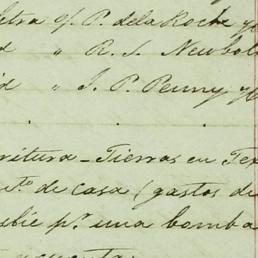 etra c/. P. dela Roche y
d " R. S. Newbol
id " J. P. Penny y
critura - Tierras en Tex
to. de casa (gastos de
sbie pr. una bomba
cuenta